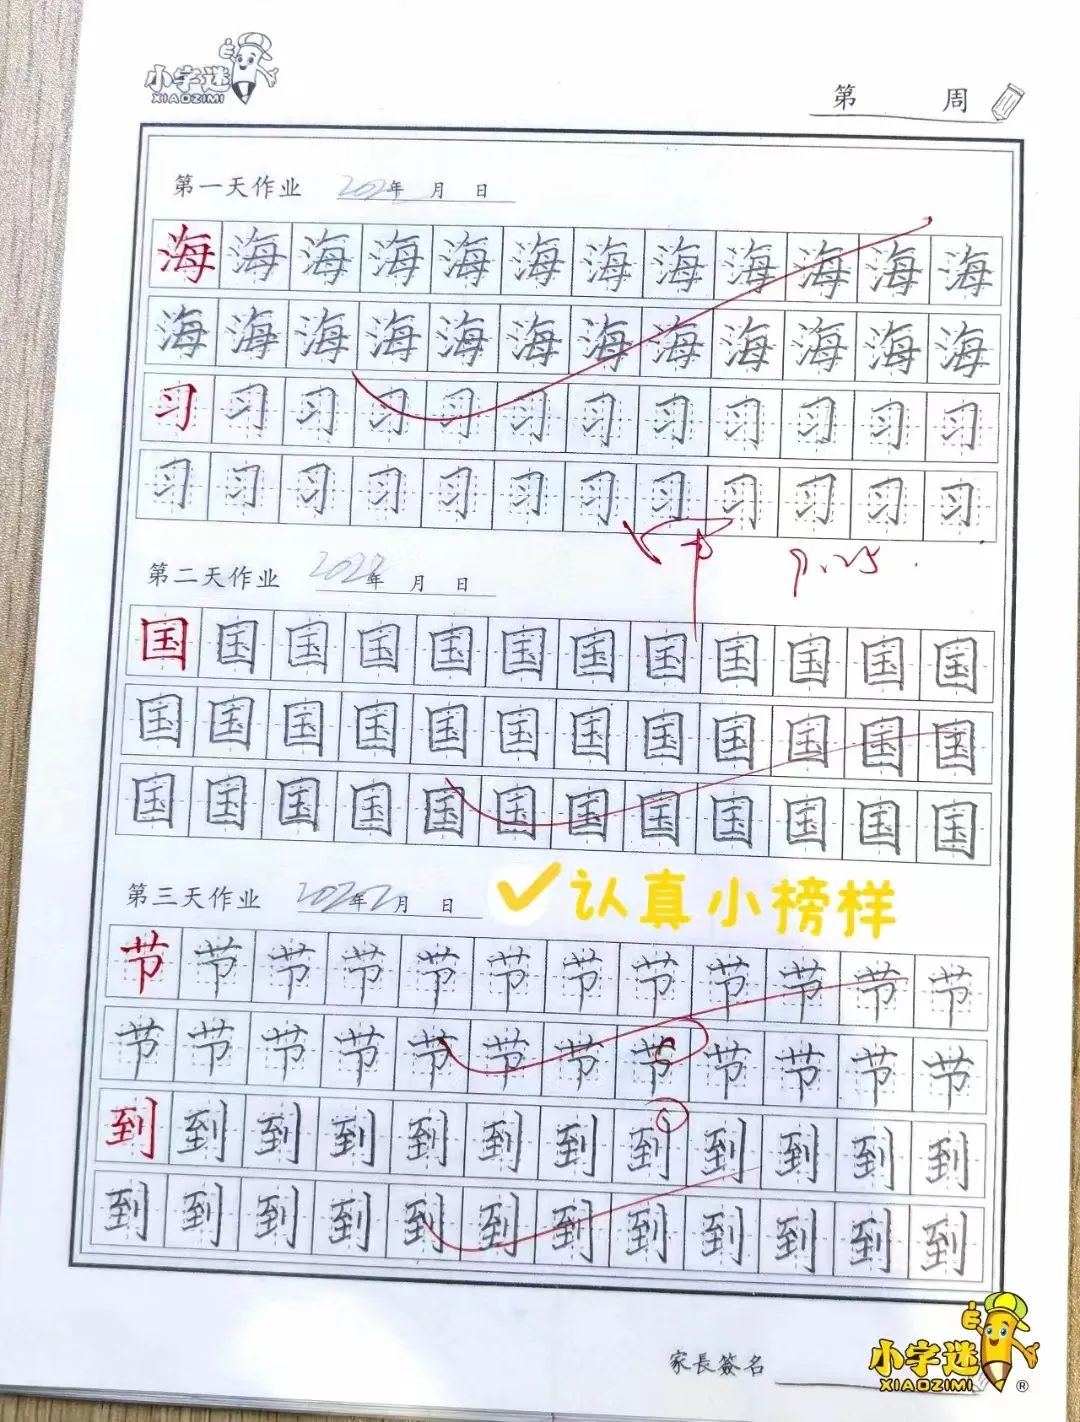 小字迷
XIAOZIMI
第 周
第一天作业 202年 月 日
海海海海海海海海海海海海
海海海海海海海海海海海海
习习习习习习习习习习习习
习习习习习习习习习习习习
9.25
第二天作业 2022年 月 日
国国国国国国国国国国国国
国国国国国国国国国国国国
国国国国国国国国国国国国
第三天作业 2022年2月 日
认真小榜样
节节节节节节节节节节节节
节节节节节节节节节节节节
到到到到到到到到到到到到
到到到到到到到到到到到到
家長簽名
小字迷
XIAOZIMI®